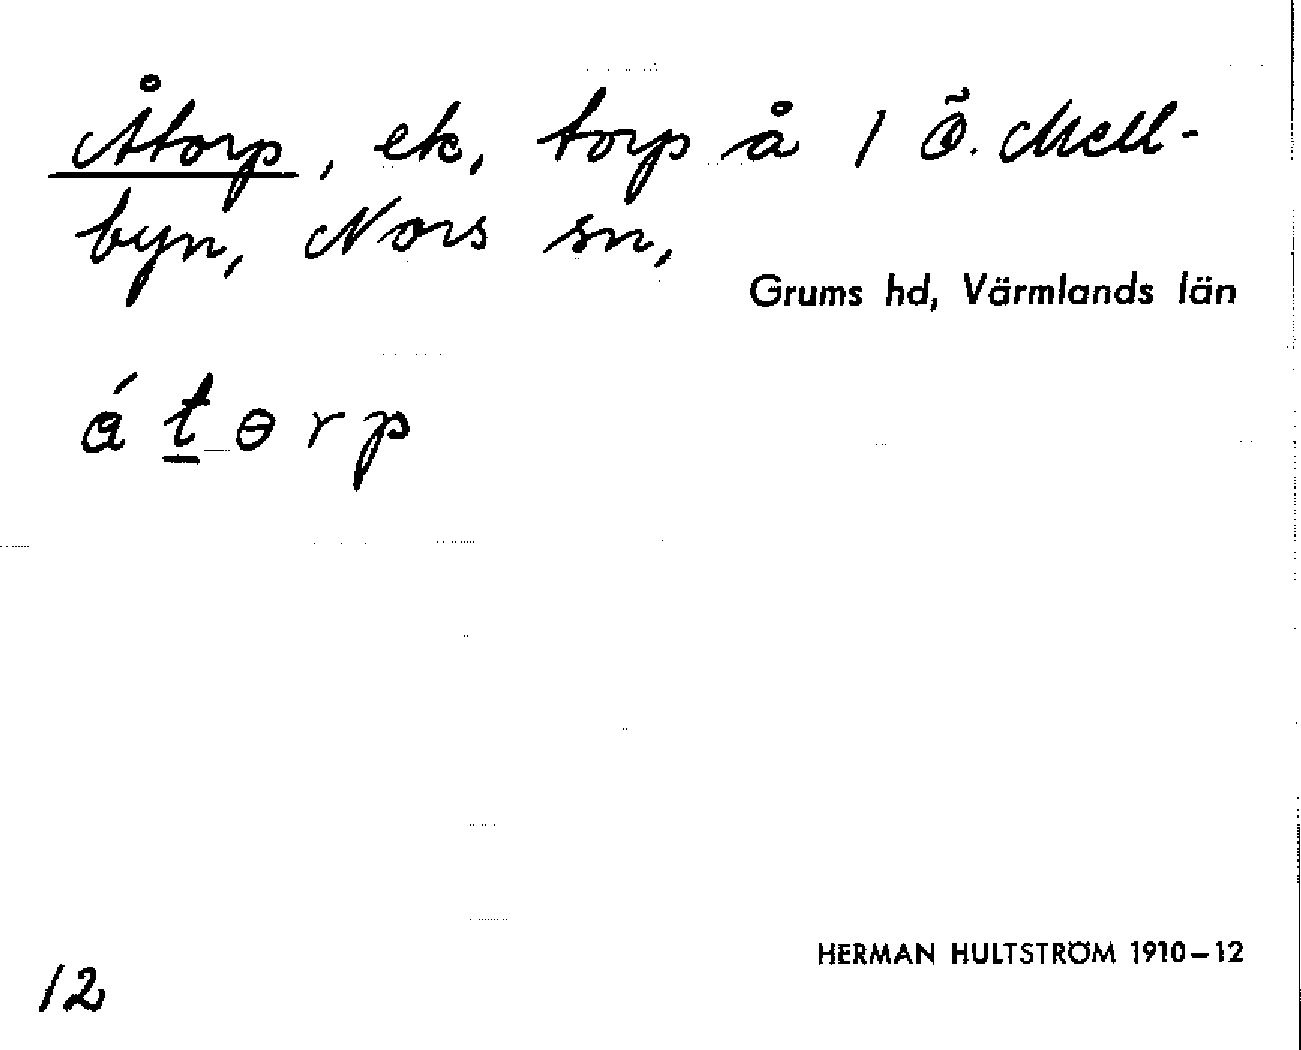 Åtorp, ek, torp å 1 Ö. Mell-
byn, Nors sn,
Grums hd, Värmlands län
á t ɵ r p
HERMAN HULTSTRÖM 1910–12
12